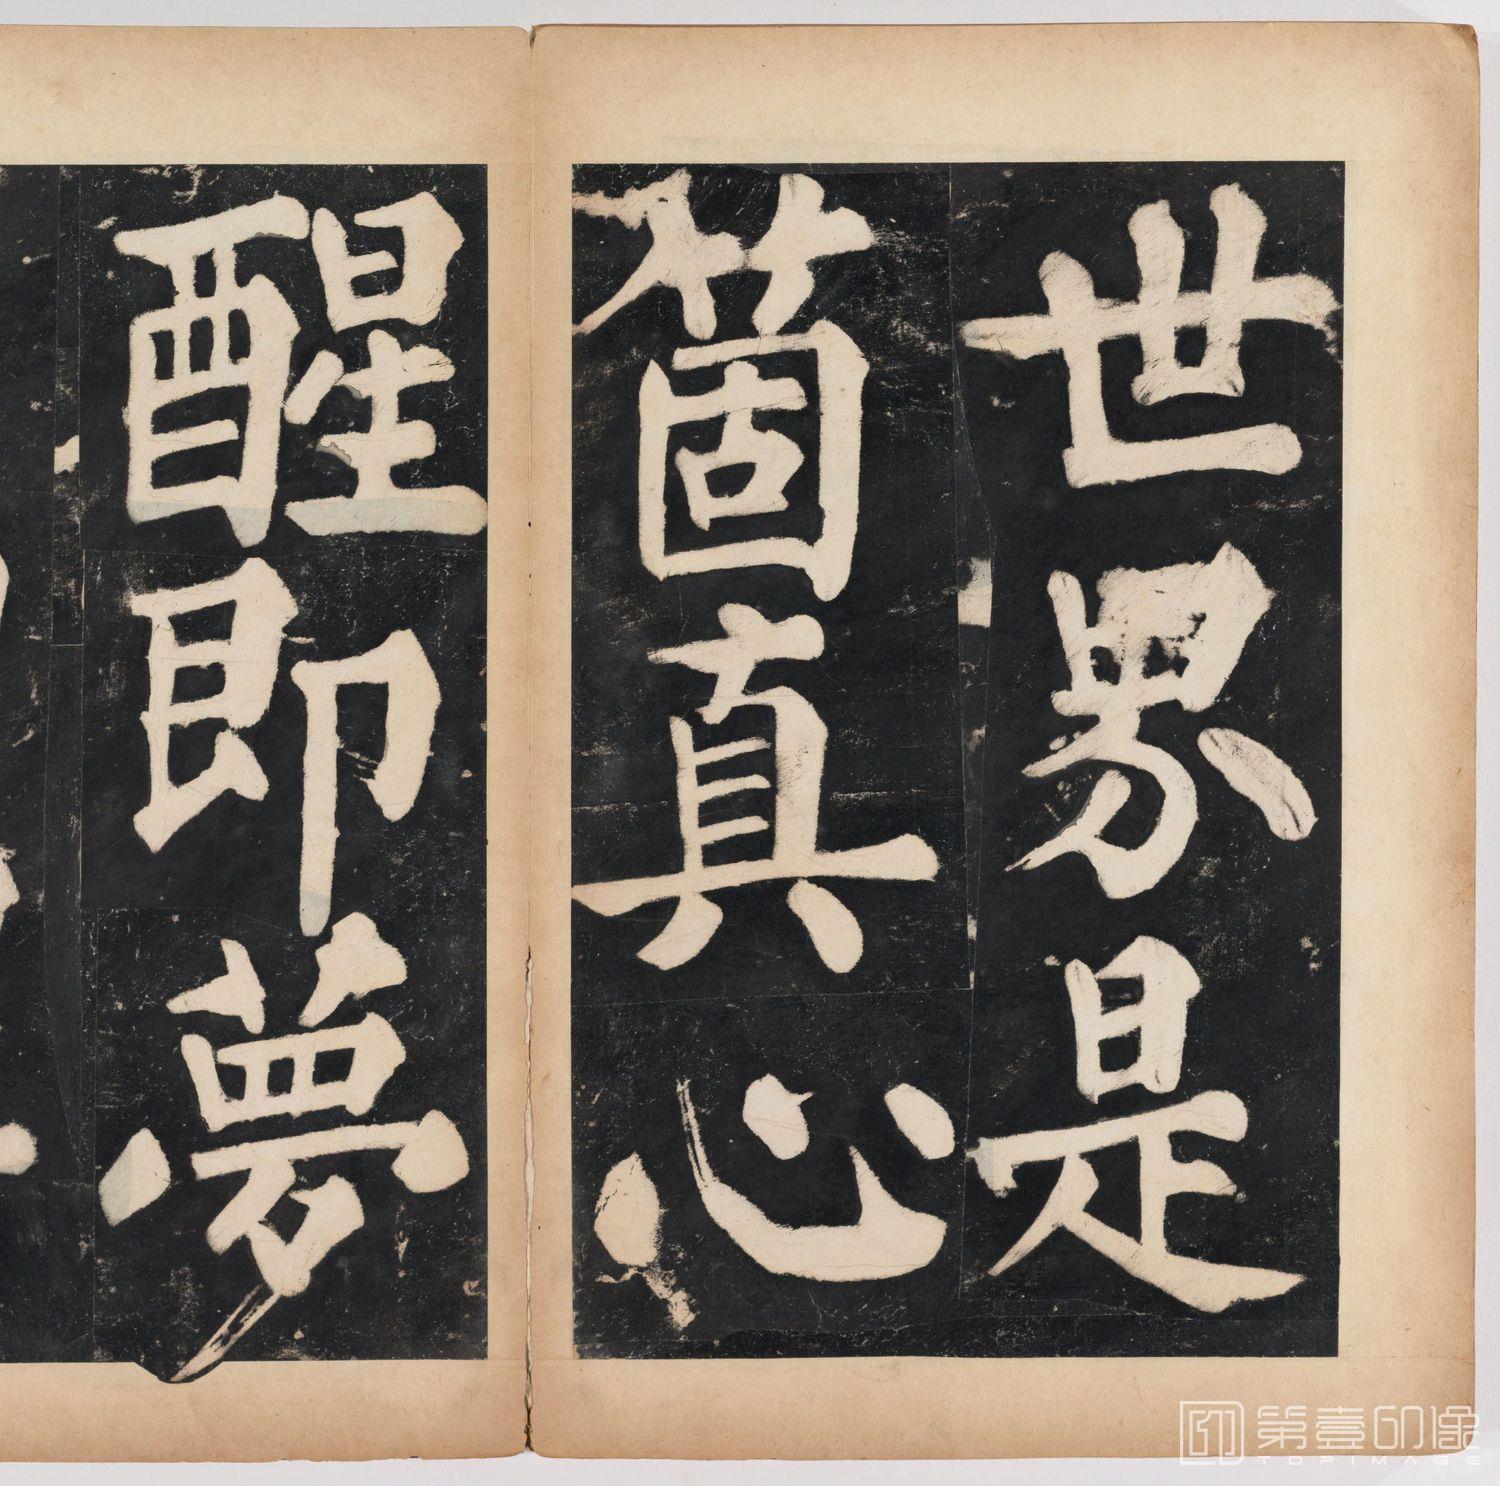 世界是
箇真心
醒即夢
第壹印像
TOPIMAGE